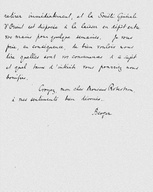 retirer immédiatement, et la Société Générale
d'Orient est disposée à la laisser en dépôt entre
vos mains pour quelques semaines. Je vous
prie, en conséquence, de bien vouloir nous
dire quelles sont vos convenances à ce sujet
et quel taux d'intérêt vous pourriez nous
bonifier.
Croyez, mon cher Monsieur
à mes sentiments bien dévoués.